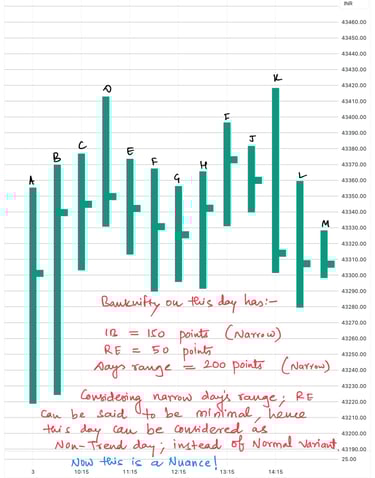 INR
43460.00
43450.00
43440.00
43430.00
43420.00
43410.00
43400.00
43390.00
43380.00
43370.00
43360.00
43350.00
43340.00
43330.00
43320.00
43310.00
43300.00
43290.00
43280.00
43270.00
43260.00
43250.00
43240.00
43230.00
43220.00
43210.00
43200.00
43190.00
25.00
A
B
C
D
E
F
G
H
I
J
K
L
M
Banknifty on this day has:-
IB = 150 points (Narrow)
RE = 50 points
Days range = 200 points (Narrow)
Considering narrow day's range; RE
can be said to be minimal, hence
this day can be considered as
Non-Trend day; instead of Normal Variant.
Now this is a Nuance!
3 10:15 11:15 12:15 13:15 14:15